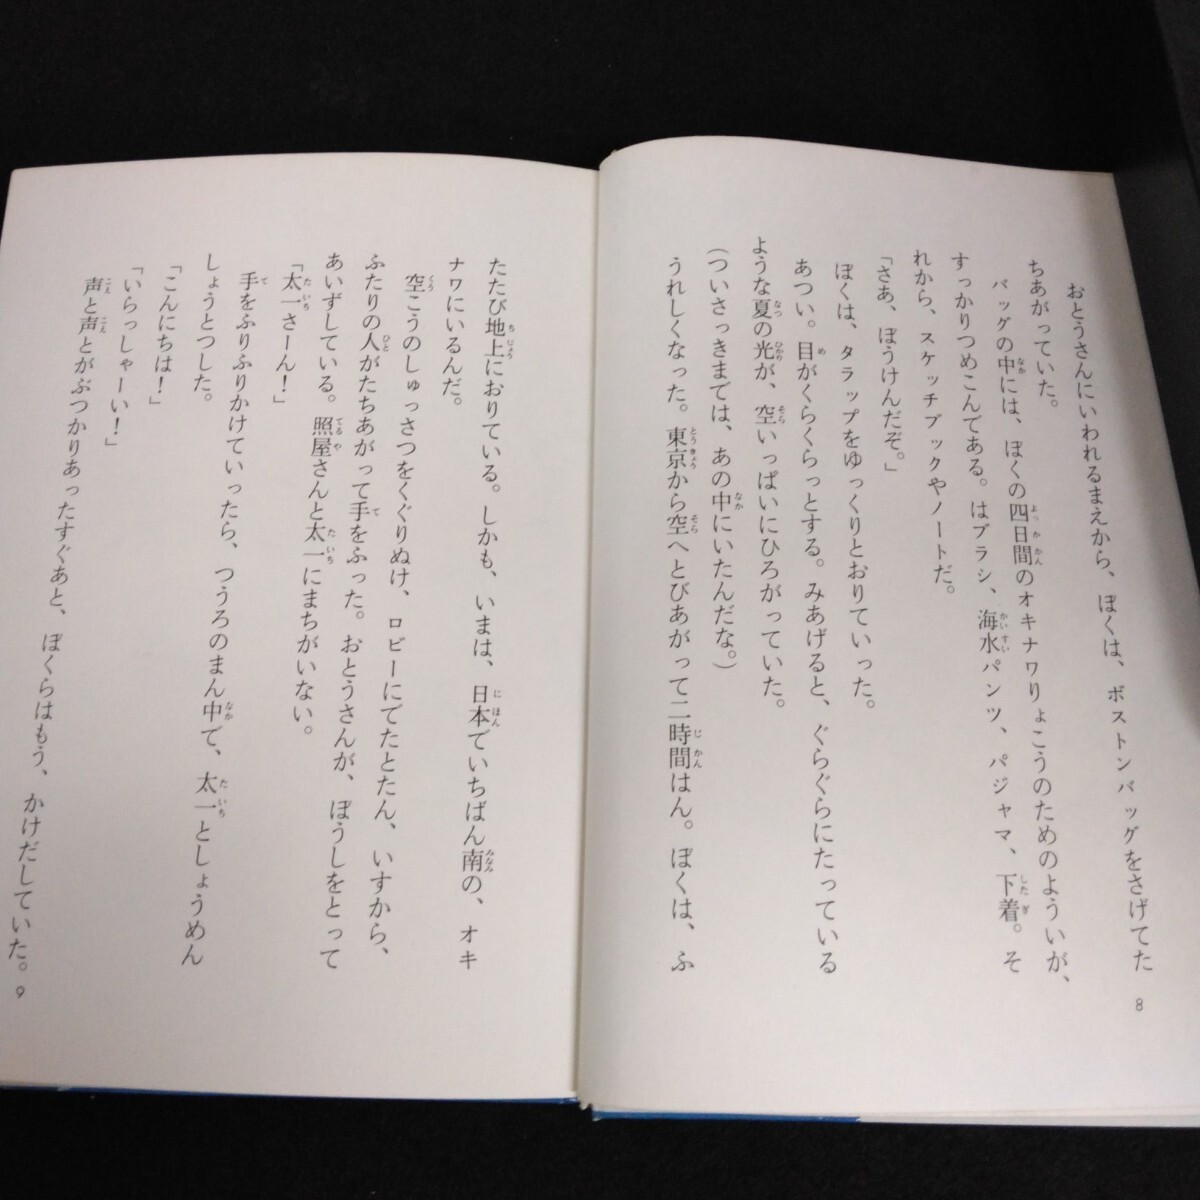 おとうさんにいわれるまえから、ぼくは、ボストンバッグをさげてた
ちあがっていた。
バッグの中には、ぼくの四日間のオキナワりょこうのためのよういが、
すっかりつめこんである。はブラシ、海水パンツ、パジャマ、下着。そ
れから、スケッチブックやノートだ。
「さあ、ぼうけんだぞ。」
ぼくは、タラップをゆっくりとおりていった。
あつい。目がくらくらっとする。みあげると、ぐらぐらにたっている
ような夏の光が、空いっぱいにひろがっていた。
(ついさっきまでは、あの中にいたんだな。)
うれしくなった。東京から空へとびあがって二時間はん。ぼくは、ふ
8
たたび地上におりている。しかも、いまは、日本でいちばん南の、オキ
ナワにいるんだ。
空こうのしゅっさつをくぐりぬけ、ロビーにでたとたん、いすから、
ふたりの人がたちあがって手をふった。おとうさんが、ぼうしをとって
あいずしている。照屋さんと太一にまちがいない。
「太一さーん！」
手をふりふりかけていったら、つうろのまん中で、太一としょうめん
しょうとつした。
「こんにちは！」
「いらっしゃーい！」
声と声とがぶつかりあったすぐあと、ぼくらはもう、かけだしていた。
9